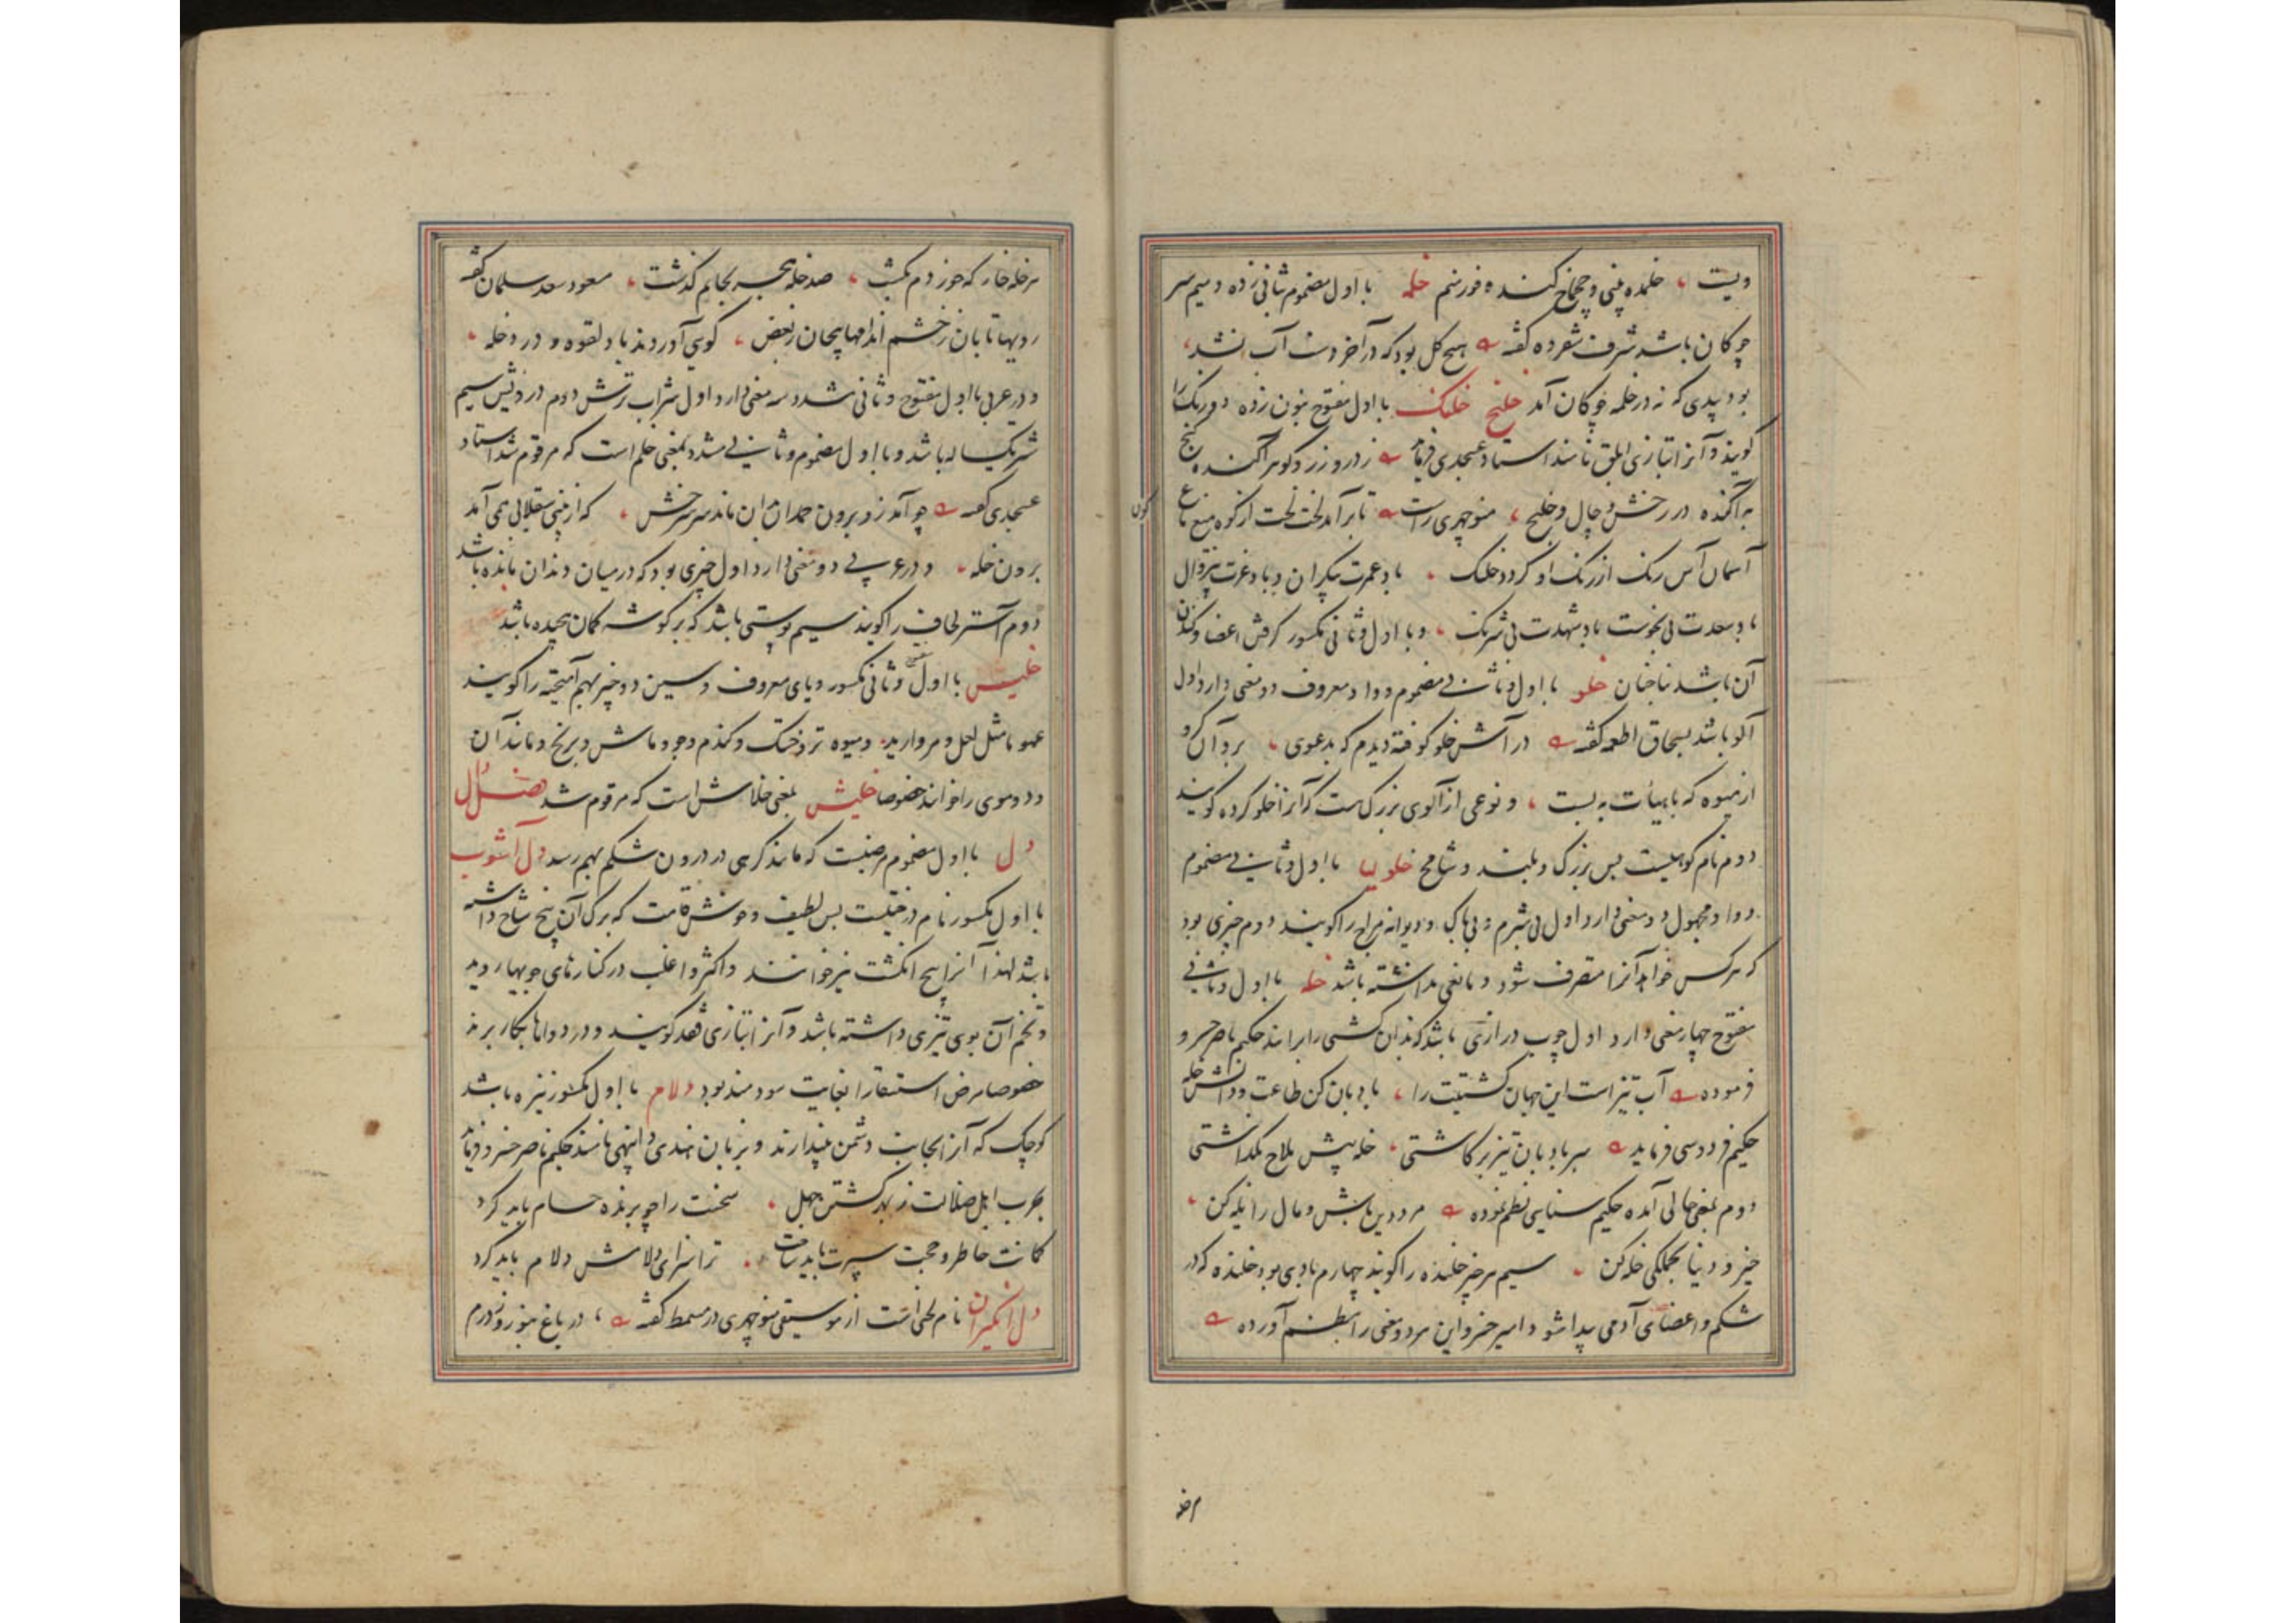 ویست ، خلمده بینی و چخماخ کننده فورنم خلمه با اول مضموم بثانی زده و میم سر
چوکان باشد شرف شفروه کفته هیچ کل بود که در آخر دست آب نشد ،
بود بیدی که نه در خلمه چوکان آمد خلنج خلنک با اول مفتوح بنون زده دورنک را
کویند و آنرا بتازی ابلق نامند استاد عسجدی فرماید ز در و زر و کوهر آکنده کنج
به آکنده در رخش و چال و خلنج ، منوچهری راست تا برآمد لخت لخت از کوه میغ ماغ
کون
آسمان آس رنک از رنک او کردد خلنک ، باد عمرت بیکران و باد عزت بیزوال
باد سعدت بی نحوست باد شهدت بی شرنک ، و با اول و ثانی مکسور کرفتن اعضا و کندن
آن باشد بناخنان خلو با اول و ثانی مضموم و واو معروف دو معنی دارد اول
آلو باشد بسحاق اطعمه کفته در آتش خلو کوفته دیدم که بدعوی ، برد آن کرو
از میوه که با هیأت به بست ، و نوعی از آلوی بزرک است که آنرا خلو کرده کویند
دوم نام کوهیست بس بزرک و بلند و شامخ خلولیا با اول و ثانی مضموم
و واو مجهول دو معنی دارد اول بی شرم و بی باک و دیوانه مزاج را کویند دوم چیزی بود
که هر کس خواهد آنرا متصرف شود و مانعی نداشته باشد خله با اول و ثانی
مفتوح چهار معنی دارد اول چوب درازی باشد که بدان کشتی را برانند حکیم ناصر خسرو
فرموده آب تیز است این جهان کشتیت را ، بادبان کن طاعت و دانش خله
حکیم فردوسی فرماید سر بادبان تیز برکاشتی ، خله پیش ملاح بکذاشتی
دوم بمعنی خالی آمده حکیم سنایی نظم نموده مرد دین باش و مال را یله کن ،
خیز و دنیا بجملکی خله کن ، سیم هر چیز خلنده را کویند چهارم بادی بود خلنده که در
شکم و اعضای آدمی پیدا شود امیر خسرو این هر دو معنی را بنظم آورده
هر خله
هر خله خار که خوردم بکشت ، صد خله هجر بجایم کذشت ، مسعود سعد سلمان کفته
رویها تابان ز خشم اندامها پیچان ز بغض ، کویی آوردند باد لقوه و درد خله ،
و در عربی با اول مفتوح و ثانی مشدد سه معنی دارد اول شراب ترش دوم درویش سیم
شتر یکساله باشد و با اول مضموم و ثانی مشدد بمعنی خلم است که مرقوم شد استاد
عسجدی کفته چو آمد زو برون حمدان بدان ماند سر سرخش ، که از بینی سقلابی همی آمد
برون خله ، و در عربی دو معنی دارد اول چیزی بود که درمیان دندان مانده باشد
دوم آستر لحاف را کویند سیم پوستی باشد که بر کوشه کمان پیچیده باشد
خلیس با اول و ثانی مکسور و یای معروف و سین دو چیز بهم آمیخته را کویند
عموما مثل لعل و مروارید و میوه تر و خشک و کندم و جو و ماش و برنج و مانند آن
و دو موی را خوانند خصوصا خلیش بمعنی خلاش است که مرقوم شد فصل دال
دل با اول مضموم مرضیست که مانند کرهی در درون شکم بهم رسد دل آشوب
با اول مکسور نام درختیست بس لطیف و خوش قامت که برک آن پنج شاخ داشته
باشد لهذا آنرا پنج انکشت نیز خوانند و اکثر و اغلب در کنارهای جویها روید
و تخم آن بوی تیزی داشته باشد و آنرا بتازی فقد کویند و در دواها بکار برند
خصوصا مرض استسقا را بغایت سودمند بود دلام با اول مکسور نیزه باشد
کوچک که آنرا بجانب دشمن بیندازند و بزبان هندی نامند حکیم ناصر خسرو فرماید
بحرب اهل ضلالت ز بهر کشتن جهل ، سخنت را چو برنده حسام باید کرد
کمانت خاطر و حجت سپرت باید ساخت ، ترا سزای دلامش دلام باید کرد
دل انکیزان نام لحنی است از موسیقی منوچهری در مسمط کفته ، در باغ بنوروز درم